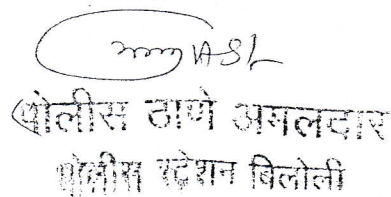 ASI
पोलीस ठाणे अमलदार
पोलीस स्टेशन बिलोली